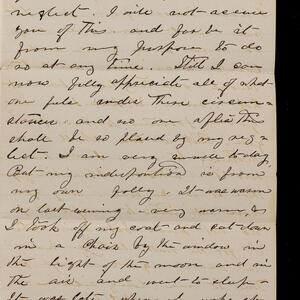 neglect. I will not accuse
you of this. and far be it
from my purpose to do
so at any time. Still I can
now fully appreciate all of what
one feels under these circum-
stances and no one after this
shall be so placed by my neg-
lect. I am very unwell to day,
But my indisposition is from
my own folly. It was warm
on last evening - very warm, &
I took off my coat and sat down
in a Chair by the window in
the light of the moon and in
the air and went to sleep.
It was late when I